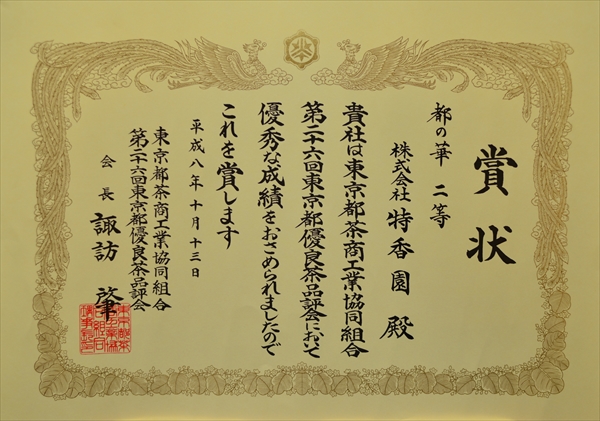 賞状
都の華 二等
株式会社 特香園 殿
貴社は東京都茶商工業協同組合
第二十六回東京都優良茶品評会において
優秀な成績をおさめられましたので
これを賞します
平成八年十月十三日
東京都茶商工業協同組合
第二十六回東京都優良茶品評会
会長 諏訪 肇